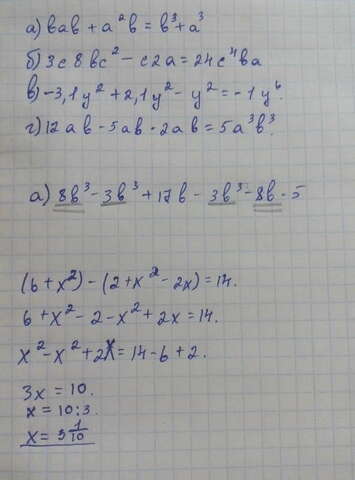 а) вав + а²в = в³ + а³
б) 3с8вс² - с2а = 24с⁴ва
в) -3,1у² + 2,1у² - у² = -1у⁶.
г) 12ав - 5ав - 2ав = 5а³в³.
а) 8в³ - 3в³ + 17в - 3в³ - 8в - 5
(6 + х²) - (2 + х² - 2х) = 14.
6 + х² - 2 - х² + 2х = 14.
х² - х² + 2х = 14 - 6 + 2.
3х = 10.
х = 10 : 3.
х = 3 1/10